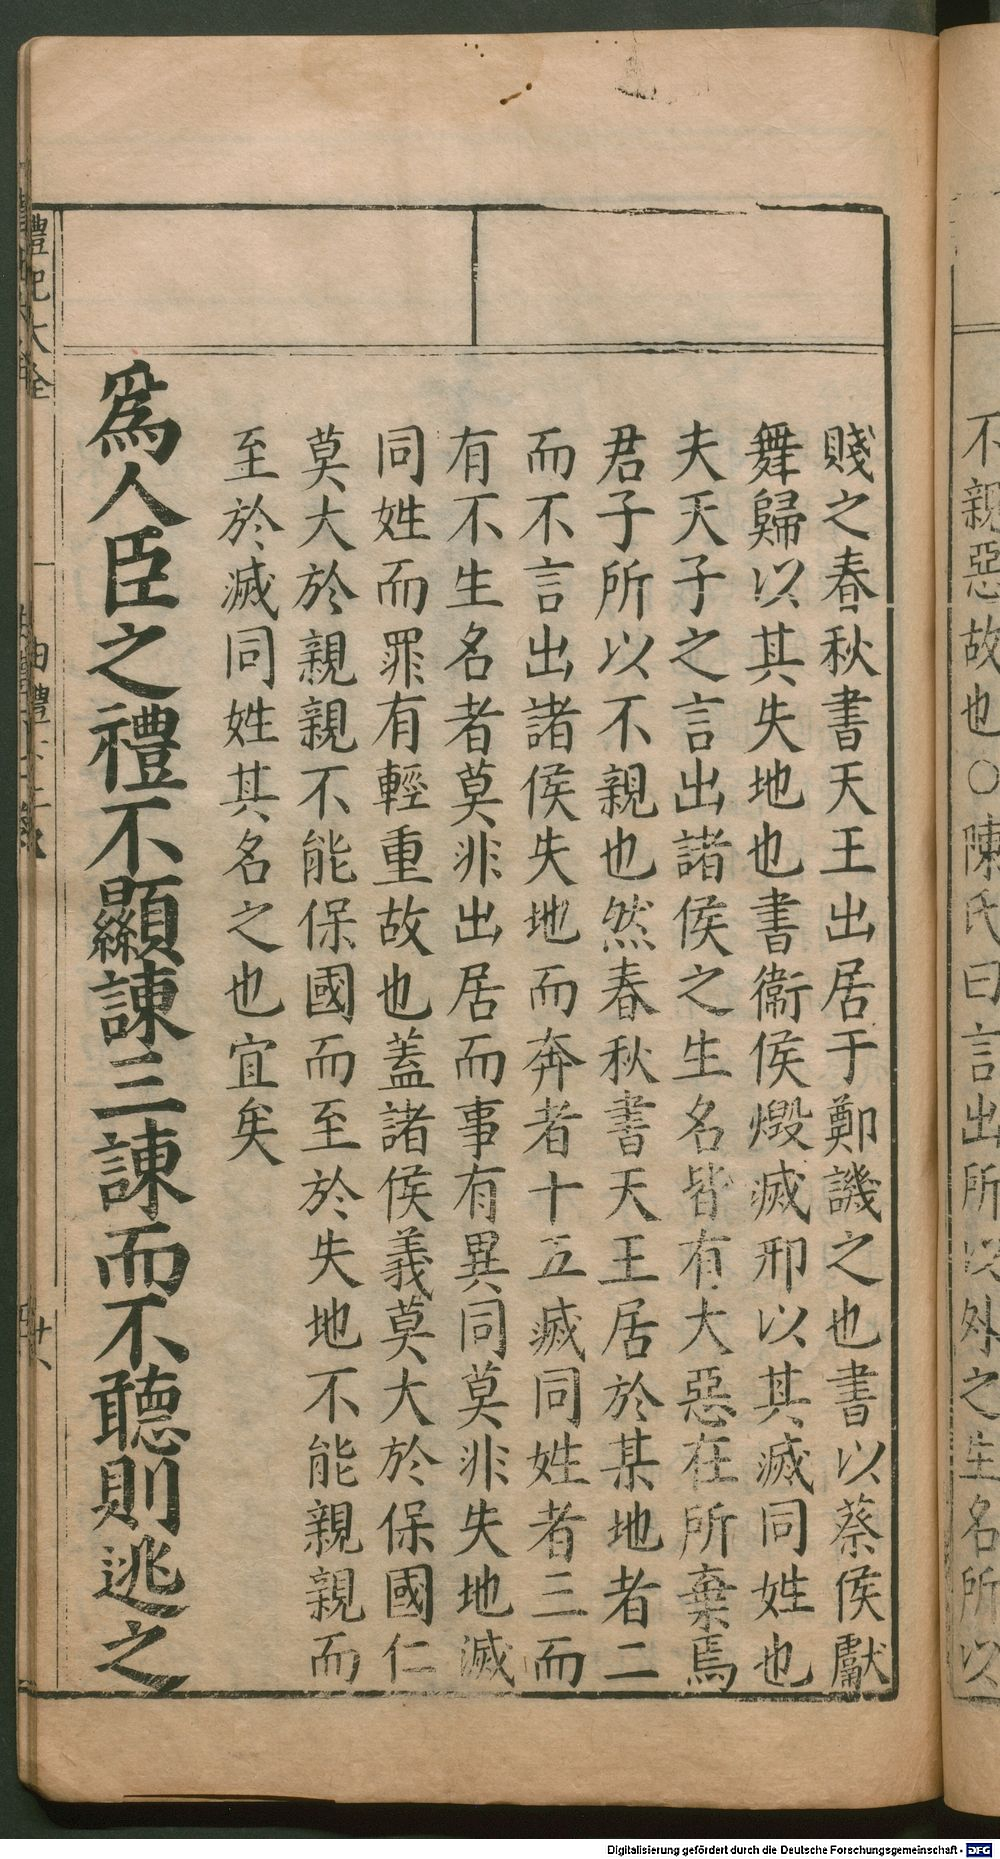 不親惡故也○陳氏曰言出所以外之生名所以
賤之春秋書天王出居于鄭譏之也書以蔡侯獻
舞歸以其失地也書衞侯燬滅邢以其滅同姓也
夫天子之言出諸侯之生名皆有大惡在所棄焉
君子所以不親也然春秋書天王居於某地者二
而不言出諸侯失地而奔者十五滅同姓者三而
有不生名者莫非出居而事有異同莫非失地滅
同姓而罪有輕重故也蓋諸侯義莫大於保國仁
莫大於親親不能保國而至於失地不能親親而
至於滅同姓其名之也宜矣
爲人臣之禮不顯諫三諫而不聽則逃之
禮記大全
廿八
Digitalisierung gefördert durch die Deutsche Forschungsgemeinschaft - DFG